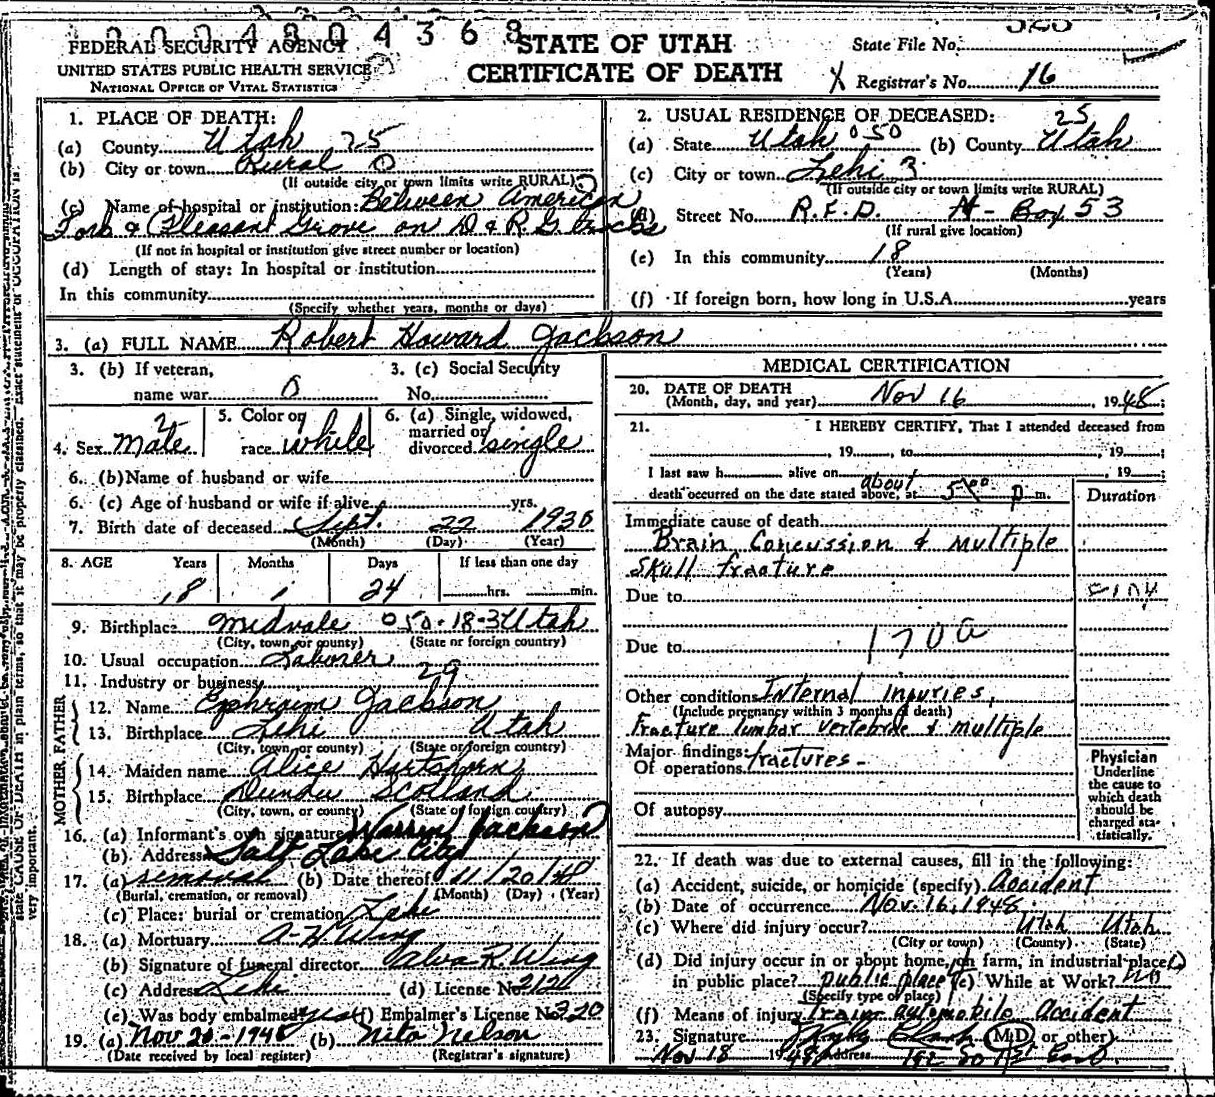 0004804368
FEDERAL SECURITY AGENCY
UNITED STATES PUBLIC HEALTH SERVICE
NATIONAL OFFICE OF VITAL STATISTICS
STATE OF UTAH
CERTIFICATE OF DEATH
State File No.
X Registrar's No. 16
1. PLACE OF DEATH:
(a) County Utah 25
(b) City or town Rural 0
(If outside city or town limits write RURAL)
(c) Name of hospital or institution: Between American
Fork & Pleasant Grove on D & R G tracks
(If not in hospital or institution give street number or location)
(d) Length of stay: In hospital or institution
In this community
(Specify whether years, months or days)
2. USUAL RESIDENCE OF DECEASED: 25
(a) State Utah 050 (b) County Utah
(c) City or town Lehi 3
(If outside city or town limits write RURAL)
(d) Street No. R.F.D. Box 53
(If rural give location)
(e) In this community 18
(Years) (Months)
(f) If foreign born, how long in U.S.A. years
3. (a) FULL NAME Robert Howard Jackson
3. (b) If veteran, name war 0
3. (c) Social Security No.
4. Sex Male 2
5. Color or race white
6. (a) Single, widowed, married or divorced single
6. (b) Name of husband or wife
6. (c) Age of husband or wife if alive yrs.
7. Birth date of deceased Sept. 22 1930
(Month) (Day) (Year)
8. AGE Years Months Days If less than one day
18 1 24 hrs. min.
9. Birthplace Midvale 050-18-3 Utah
(City, town, or county) (State or foreign country)
10. Usual occupation Laborer
11. Industry or business 29
MOTHER, FATHER
12. Name Ephraim Jackson
13. Birthplace Lehi Utah
(City, town, or county) (State or foreign country)
14. Maiden name Alice Hartshorn
15. Birthplace Dundee Scotland
(City, town, or county) (State or foreign country)
16. (a) Informant's own signature Jackson
(b) Address Salt Lake City
17. (a) removal (b) Date thereof 11/20/48
(Burial, cremation, or removal) (Month) (Day) (Year)
(c) Place: burial or cremation Lehi
18. (a) Mortuary A. H. Wing
(b) Signature of funeral director R. Wing
(c) Address Lehi (d) License No.
(e) Was body embalmed? yes (f) Embalmer's License No. 320
19. (a) Nov 20-1948 (b) Nita Nelson
(Date received by local register) (Registrar's signature)
MEDICAL CERTIFICATION
20. DATE OF DEATH
(Month, day, and year) Nov 16, 1948;
21. I HEREBY CERTIFY, That I attended deceased from
, 19 , to , 19 ;
I last saw h alive on , 19 ;
about
death occurred on the date stated above, at 5:00 p m.
Duration
Immediate cause of death
Brain Concussion & multiple
skull fracture
Due to
170a
Due to
Other conditions Internal Injuries,
(Include pregnancy within 3 months of death)
Fracture lumbar vertebrae & multiple
Major findings: fractures -
Of operations
Of autopsy
Physician
Underline
the cause to
which death
should be
charged sta-
tistically.
22. If death was due to external causes, fill in the following:
(a) Accident, suicide, or homicide (specify) Accident
(b) Date of occurrence Nov. 16, 1948
(c) Where did injury occur? Utah Utah
(City or town) (County) (State)
(d) Did injury occur in or about home, on farm, in industrial place,
in public place? public place (e) While at Work? No
(Specify type of place)
(f) Means of injury Train automobile Accident
23. Signature Clark (M.D. or other)
Nov 18 1948 Address